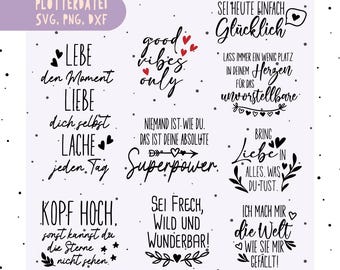 PLOTTERDATEI
SVG, PNG, DXF
LEBE
den Moment
LIEBE
dich selbst
LACHE
jeden Tag
good
vibes
only
SEI HEUTE EINFACH
Glücklich
LASS IMMER EIN WENIG PLATZ
IN DEINEM Herzen
FÜR DAS
unvorstellbare
NIEMAND IST WIE DU.
DAS IST DEINE ABSOLUTE
Superpower
BRING
Liebe in
ALLES, WAS
DU TUST.
KOPF HOCH.
sonst kannst du
die Sterne
nicht sehen.
SEI FRECH,
WILD UND
WUNDERBAR!
ICH MACH MIR
die Welt
WIE SIE MIR
GEFÄLLT!